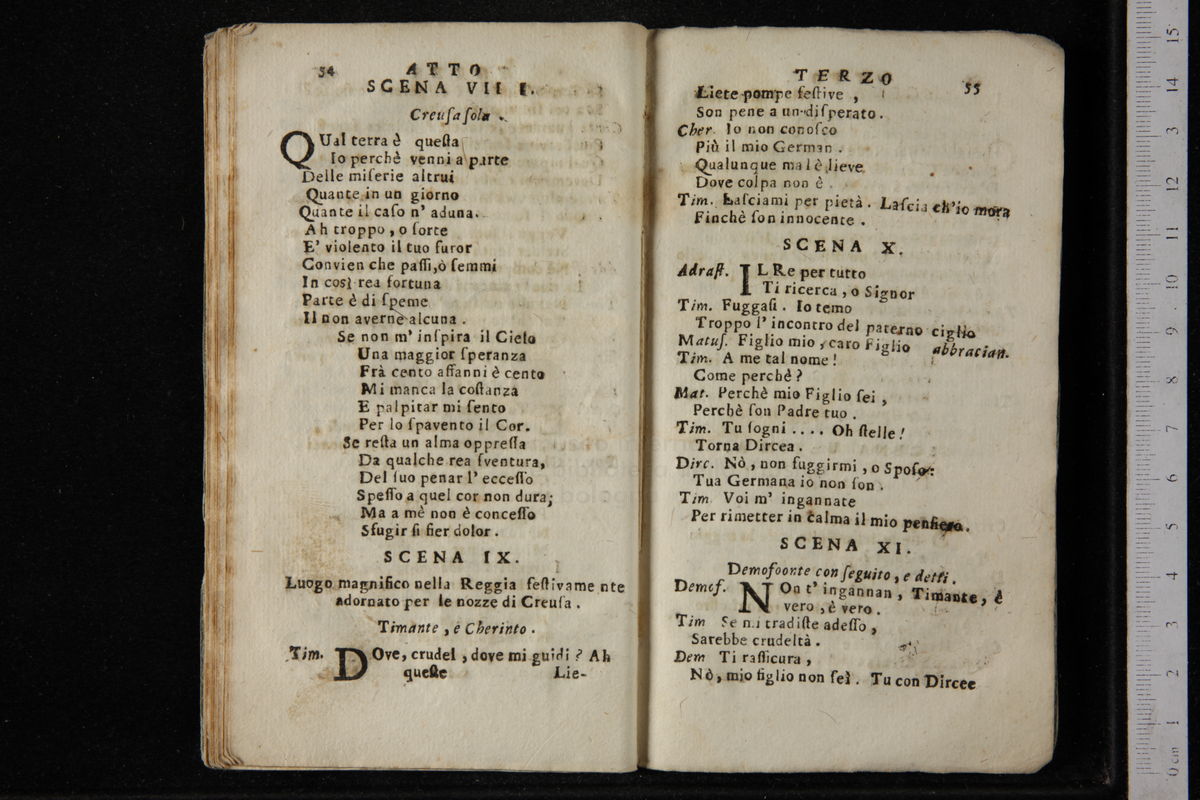 54 ATTO
SCENA VIII.
Creusa sola.
QUal terra è questa
Io perchè venni a parte
Delle miserie altrui
Quante in un giorno
Quante il caso n' aduna.
Ah troppo, o sorte
E' violento il tuo furor
Convien che passi, ò semmi
In così rea fortuna
Parte è di speme
Il non averne alcuna.
Se non m' inspira il Cielo
Una maggior speranza
Frà cento affanni è cento
Mi manca la costanza
E palpitar mi sento
Per lo spavento il Cor.
Se resta un alma oppressa
Da qualche rea sventura,
Del suo penar l' eccesso
Spesso a quel cor non dura;
Ma a mè non è concesso
Sfugir sì fier dolor.
SCENA IX.
Luogo magnifico nella Reggia festivamente
adornato per le nozze di Creusa.
Timante, e Cherinto.
Tim. DOve, crudel, dove mi guidi? Ah
queste Lie-
TERZO 55
Liete pompe festive,
Son pene a un disperato.
Cher. Io non conosco
Più il mio German.
Qualunque mal è lieve
Dove colpa non è.
Tim. Lasciami per pietà. Lascia ch'io mora
Finchè son innocente.
SCENA X.
Adrast. IL Re per tutto
Ti ricerca, o Signor
Tim. Fuggasi. Io temo
Troppo l' incontro del paterno ciglio
Matus. Figlio mio, caro Figlio abbracian.
Tim. A me tal nome!
Come perchè?
Mat. Perchè mio Figlio sei,
Perchè son Padre tuo.
Tim. Tu sogni .... Oh stelle!
Torna Dircea.
Dirc. Nò, non fuggirmi, o Sposo:
Tua Germana io non son.
Tim Voi m' ingannate
Per rimetter in calma il mio pensiero.
SCENA XI.
Demofoonte con seguito, e detti.
Demof. NOn t' ingannan, Timante, è
vero, è vero.
Tim Se mi tradiste adesso,
Sarebbe crudeltà.
Dem Ti rassicura,
Nò, mio figlio non sei. Tu con Dircee
0 cm 1 2 3 4 5 6 7 8 9 10 11 12 13 14 15